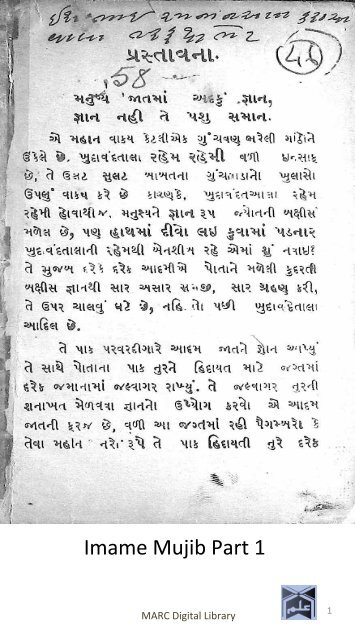 ૪૬
પ્રસ્તાવના.
58
મનુષ્ય જાતમાં અદકું જ્ઞાન,
જ્ઞાન નહી તે પશુ સમાન.
એ મહાન વાકય કેટલીએક ગુંચવણ ભરેલી ગાંઠોને
ઉકેલે છે. ખુદાવંદતાલા રહેમ રહેમી વળી ઇનસાફ
છે, તે ઉલટ સુલટ બાબતના ગુંચવાડાનો ખુલાસો
ઉપલું વાકય કરે છે કારણકે, ખુદાવંદતઆલા રહેમ
રહેમી હોવાથીજ, મનુશ્યને જ્ઞાન રૂપ જ્યોતની બક્ષીસ
મળેલ છે, પણ હાથમાં દીવો લઇ કુવામાં પડનાર
ખુદાવંદતાલાની રહેમથી બેનશીબ રહે એમાં શું નવાઇ?
તે મુજબ દરેકે દરેક આદમીએ પોતાને મળેલી કુદરતી
બક્ષીસ જ્ઞાનથી સાર અસાર સમજી, સાર ગ્રહણ કરી,
તે ઉપર ચાલવું ઘટે છે, નહિ તો પછી ખુદાવંદેતાલા
આદિલ છે.
તે પાક પરવરદીગારે આદમ જાતને જ્ઞાન આપ્યું
તે સાથે પોતાના પાક નુરને હિદાયત માટે જગ્તમાં
દરેક જમાનામાં જલ્વાગર રાખ્યું. તે જલ્વાગર નુરની
શનાખત મેળવવા જ્ઞાનનો ઉધ્યોગ કરવો એ આદમ
જાતની ફરજ છે, વળી આ જગ્તમાં રહી પેગમ્બરો કે
તેવા મહાન નરો રૂપે તે પાક હિદાયતી નુરે દરેક
Imame Mujib Part 1
MARC Digital Library
علم
1